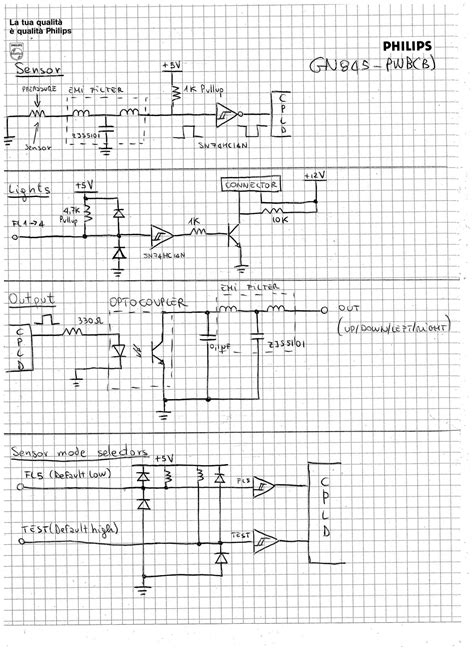 La tua qualità
è qualità Philips
PHILIPS
GN845-PWB(B)
Sensor
+5V
PRESSURE
EMI FILTER
1K Pullup
CPLD
Z3SS101
sensor
SN74HC14N
Lights
+5V
+12V
CONNECTOR
4,7K
Pullup
FL1→4
1K
10K
SN74HC14N
EMI FILTER
Output
OPTOCOUPLER
330Ω
CPLD
OUT
(UP/DOWN/LEFT/RIGHT)
0,1µF
Z3SS101
Sensor mode selectors
+5V
FLS (Default low)
FLS
CPLD
TEST (Default high)
TEST